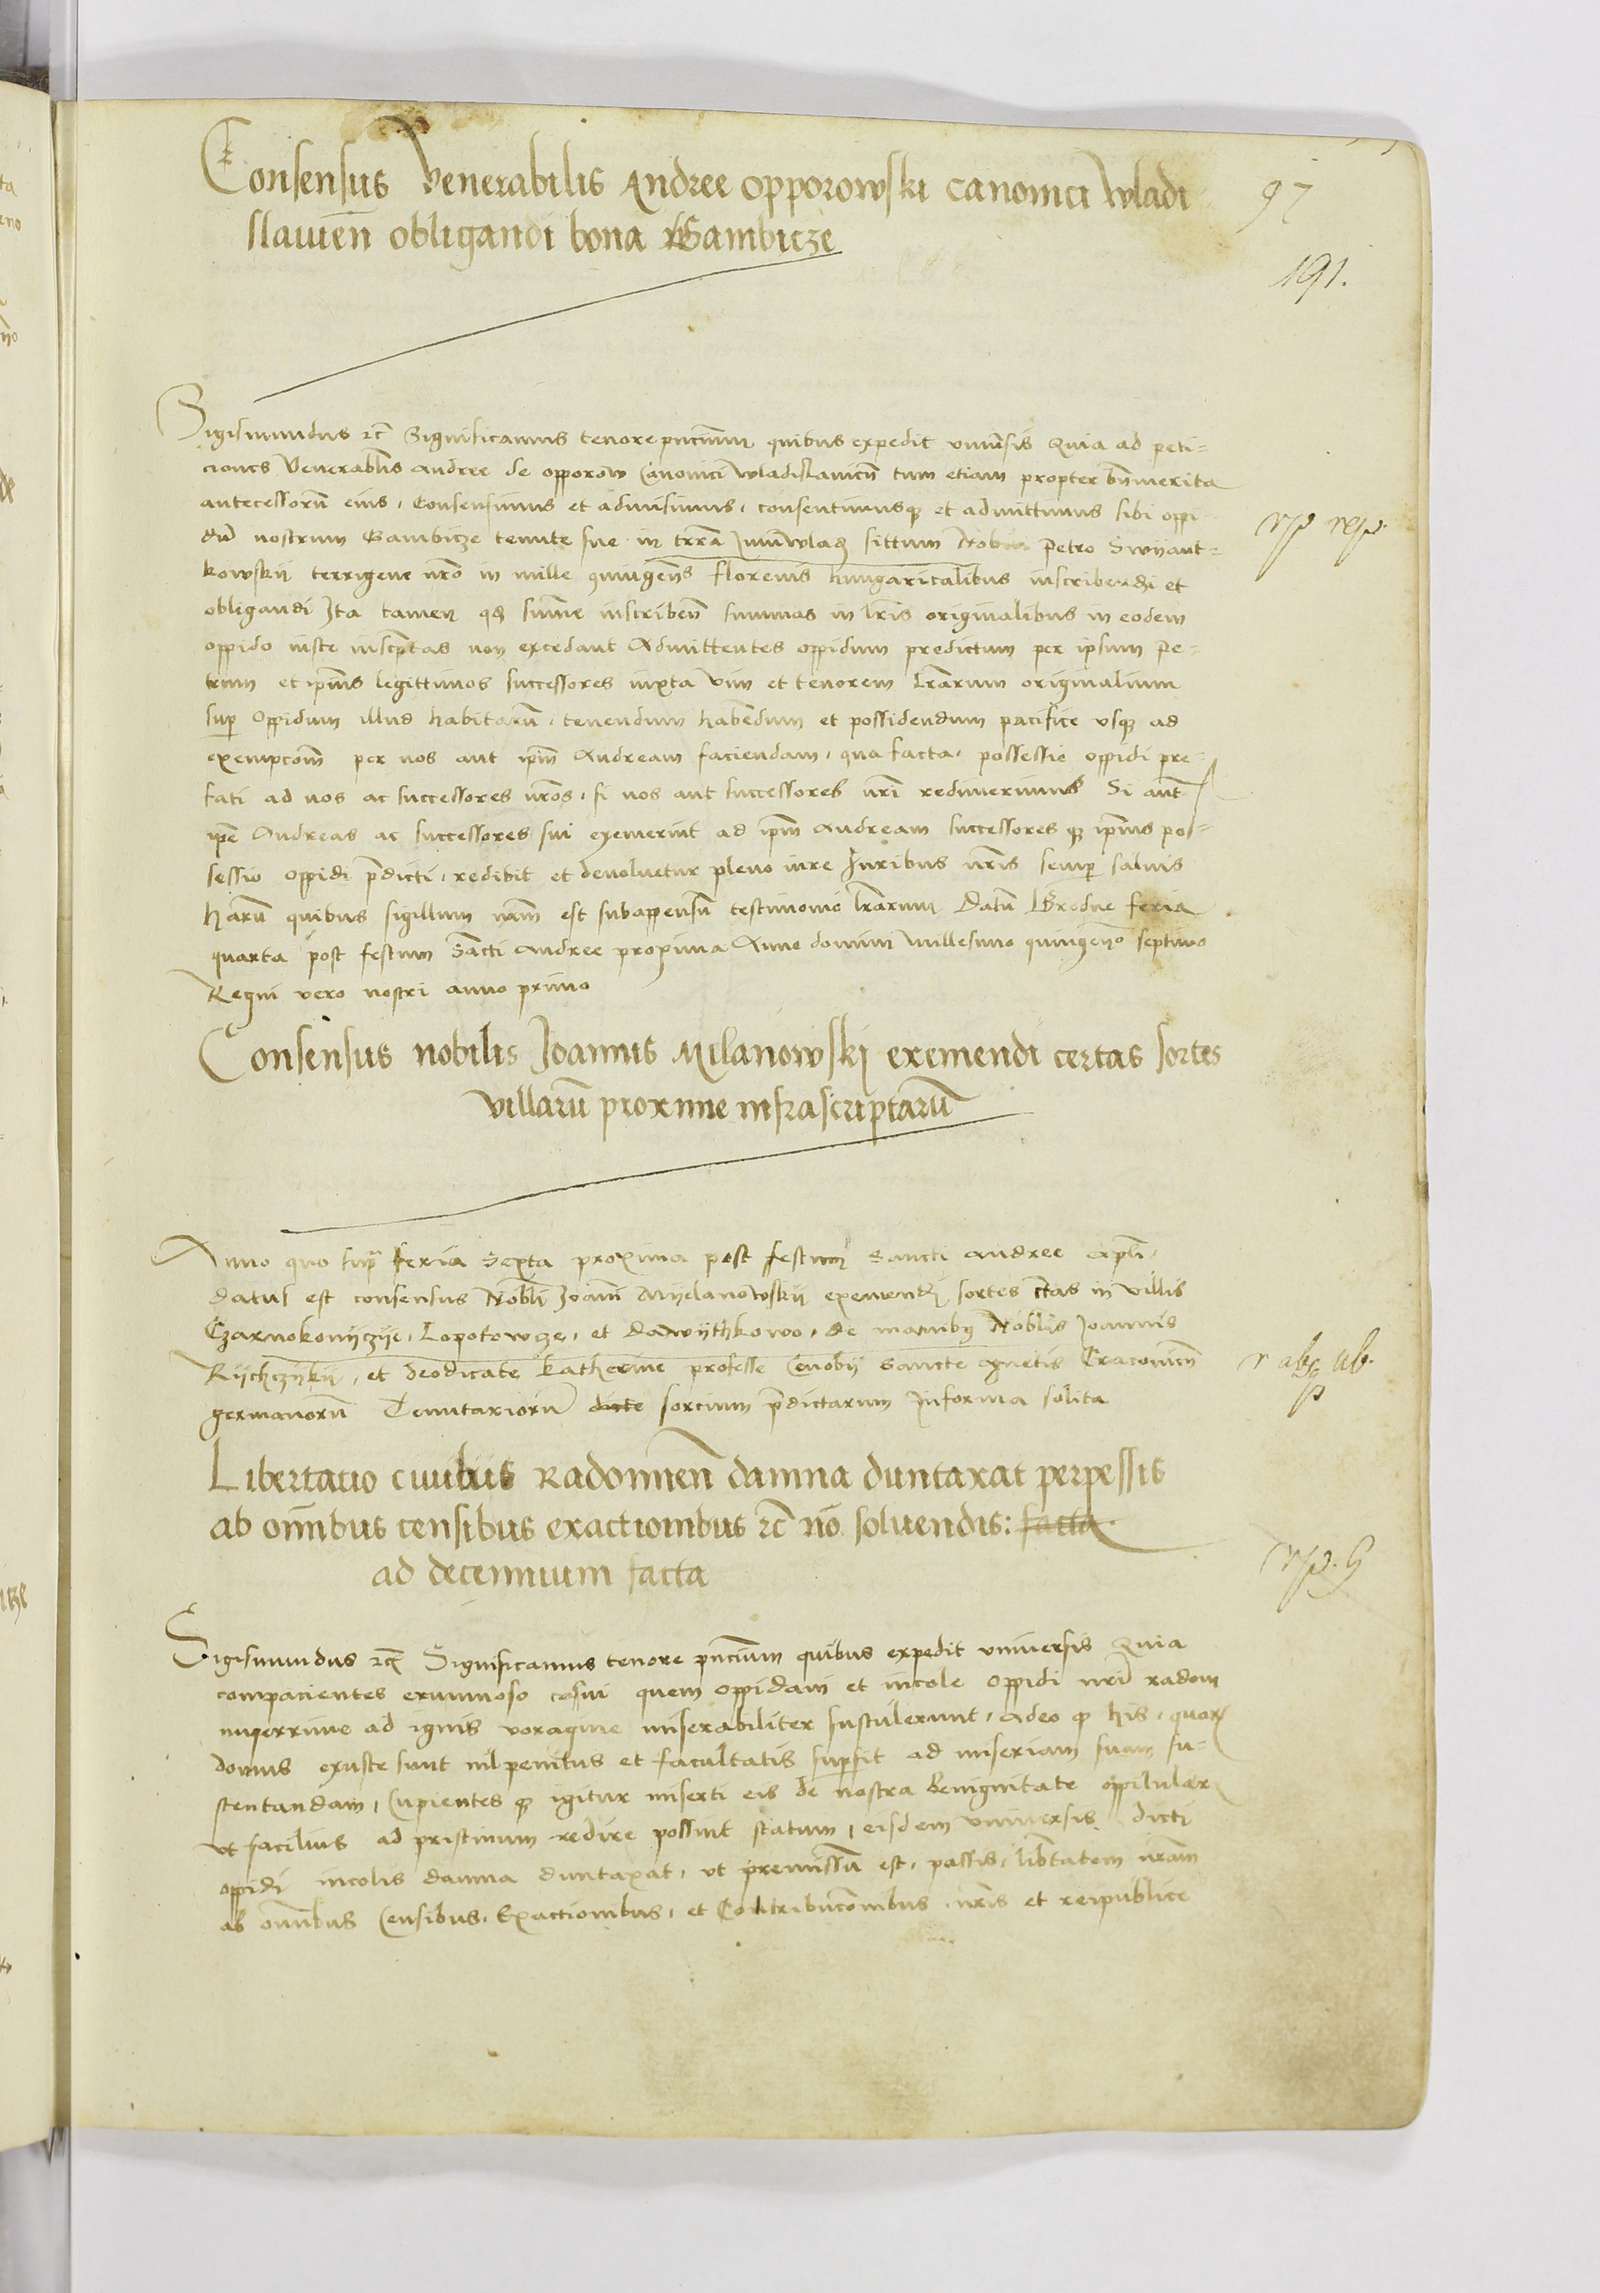 Consensus Venerabilis Andree Opporowski canonici Wladi
slauien̄ obligandi bona Gambicze
97
191.
Sigismundus rc̄ Significamus tenore pn̄cium quibus expedit vniuersis Quia ad peti-
ciones Venerabilis Andree de Opporow Canonici Wladislauien̄ tum etiam propter bn̄merita
antecessorū eius, Consensimus et admisimus, consentimusq₃ et admittimus sibi oppi-
dū nostrum Gambicze tenute sue in trr̄a Junīwlad₃ sittum Nobili Petro Swyant-
kowskij terrigene nr̄o in mille quingen̄s florenis hungaricalibus inscribendi et
obligandi Ita tamen q₃ sum̄e inscriben̄ summas in lr̄is originalibus in eodem
oppido iuste inscp̄tas non excedant Admittentes oppidum predictum per ipsum Pe-
trum et ip̄ius legittimos successores iuxta vim et tenorem lr̄arum originalium
sup̱ oppidum illud habitarū, tenendum habendum et possidendum pacifice vsq₃ ad
exempcom̄ per nos aut ip̄m Andream faciendam, qua facta, possessio oppidi pre-
fati ad nos ac successores nr̄os, si nos aut successores nr̄i redimerimus Si aut̄
ip̄e Andreas ac successores sui exemerint ad ip̄m Andream successoresq₃ ip̄ius pos-
sessio oppidi p̄dicti, redibit et deuoluetur pleno iure Iuribus nr̄is semp̱ saluis
harū quibus sigillum nr̄m est subappensū testimonio lr̄arum Datū Grodne feria
quarta post festum Sancti Andree proxima Anno domini millesimo quingen̄o septimo
Regni vero nostri anno primo
rp resp.
Consensus nobilis Joannis Milanowskj exemendi certas sortes
villarū proxime infrascriptarū
Anno quo sup̄ feria Sexta proxima post festum Sancti Andree ap̄li,
datus est consensus Nobli Joāni Mijlanowskij exemendi sortes c̄tas in villis
Czarnokonijczije, Lopotowcze, et Dawijthkowo, de manib₉ Noblis Joannis
Rijchczijkij, et deodicate Katherine professe Cenobij Sancte Agnetis Cracouien̄
germanorū Tenutariorū dicte sorcium p̄dictarum In forma solita
Libertatio ciuibus Radomien̄ damna duntaxat perpessis
ab om̄ibus censibus exactionibus rc̄ nō soluendis: facta
ad decennium facta
Sigismundus rc̄ Significamus tenore pn̄cium quibus expedit vniuersis Quia
compacientes erumnoso casui quem oppidani et incole oppidi nr̄i Radom
nuperrime ad ignis voragine miserabiliter sustulerunt, adeo q₃ his, quor₎
domus exuste sunt nil penitus et facultatis supersit ad miseriam suam su-
stentandam, Cupientesq₃ igitur miserti eis de nostra benignitate oppitular₎
vt facilius ad pristinum redire possint statum, eisdem vniuersis dicti
oppidi incolis damna duntaxat, vt premissū est, passis, lib̄tatem nr̄am
ab om̄ibus Censibus, Exactionibus, et Contribucōnibus nr̄is et reipublice